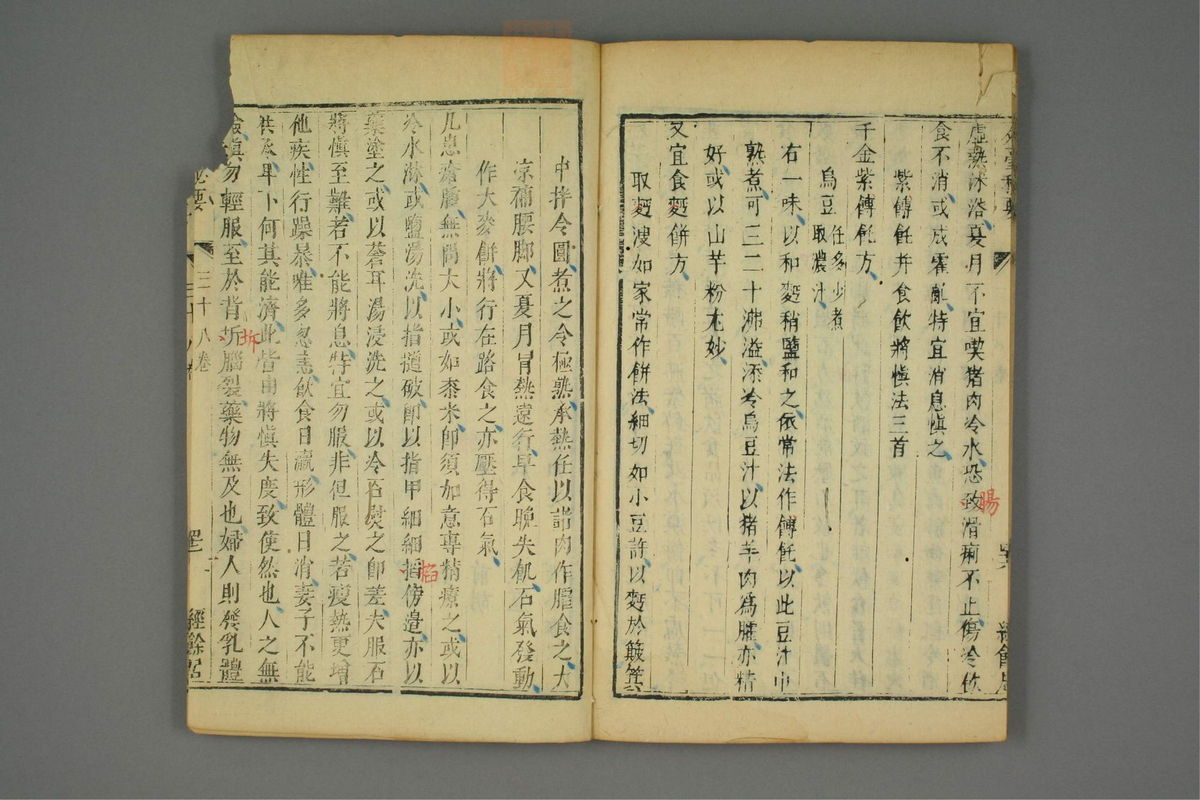 虛熱沐浴夏月不宜喫猪肉冷水恐致滑痢不止傷冷飲
食不消或成霍亂特宜消息慎之
紫餺飥并食飲將慎法三首
千金紫餺飥方
烏豆任多少煮
取濃汁
右一味以和麪稍鹽和之依常法作餺飥以此豆汁中
熟煮可三二十沸溢添冷烏豆汁以猪羊肉爲臛亦精
好或以山芋粉尤妙
又宜食麪餅方
取麪溲如家常作餅法細切如小豆許以麪於簸箕
中拌令圓煮之令極熟承熱任以諸肉作臛食之大
凉補腰脚又夏月冒熱遠行早食晚失飢石氣發動
作大麥餅將行在路食之亦壓得石氣
凡患瘡腫無問大小或如黍米卽須加意專精療之或以
冷水淋或鹽湯洗以指搥破卽以指甲細細搯傍邊亦以
藥塗之或以蒼耳湯浸洗之或以冷石熨之卽差夫服石
將慎至難若不能將息特宜勿服非但服之若瘦熱更增
他疾性行躁暴唯多忿恚飲食日羸形體日消妻子不能
供承卑下何其能濟此皆由將慎失度致使然也人之無
勿輕服至於背折腦裂藥物無及也婦人則發乳體
三十八卷
經餘居
暘
掐
拆